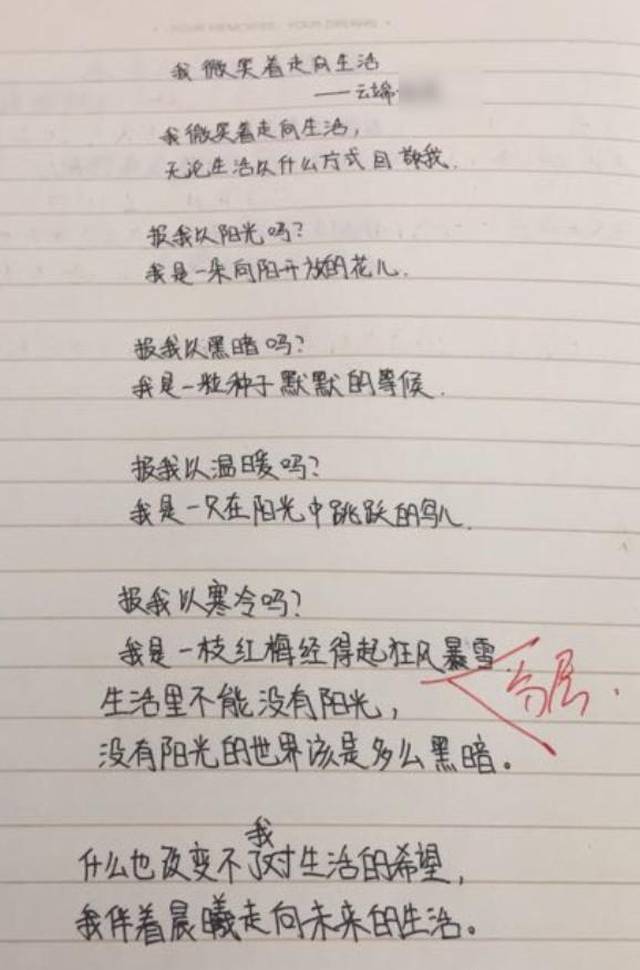 我微笑着走向生活
——云端
我微笑着走向生活，
无论生活以什么方式回敬我.
报我以阳光吗？
我是一朵向阳开放的花儿.
报我以黑暗吗？
我是一粒种子默默的等候.
报我以温暖吗？
我是一只在阳光中跳跃的鸟儿.
报我以寒冷吗？
我是一枝红梅经得起狂风暴雪.
生活里不能没有阳光，
没有阳光的世界该是多么黑暗。
我
什么也改变不了对生活的希望，
我伴着晨曦走向未来的生活。